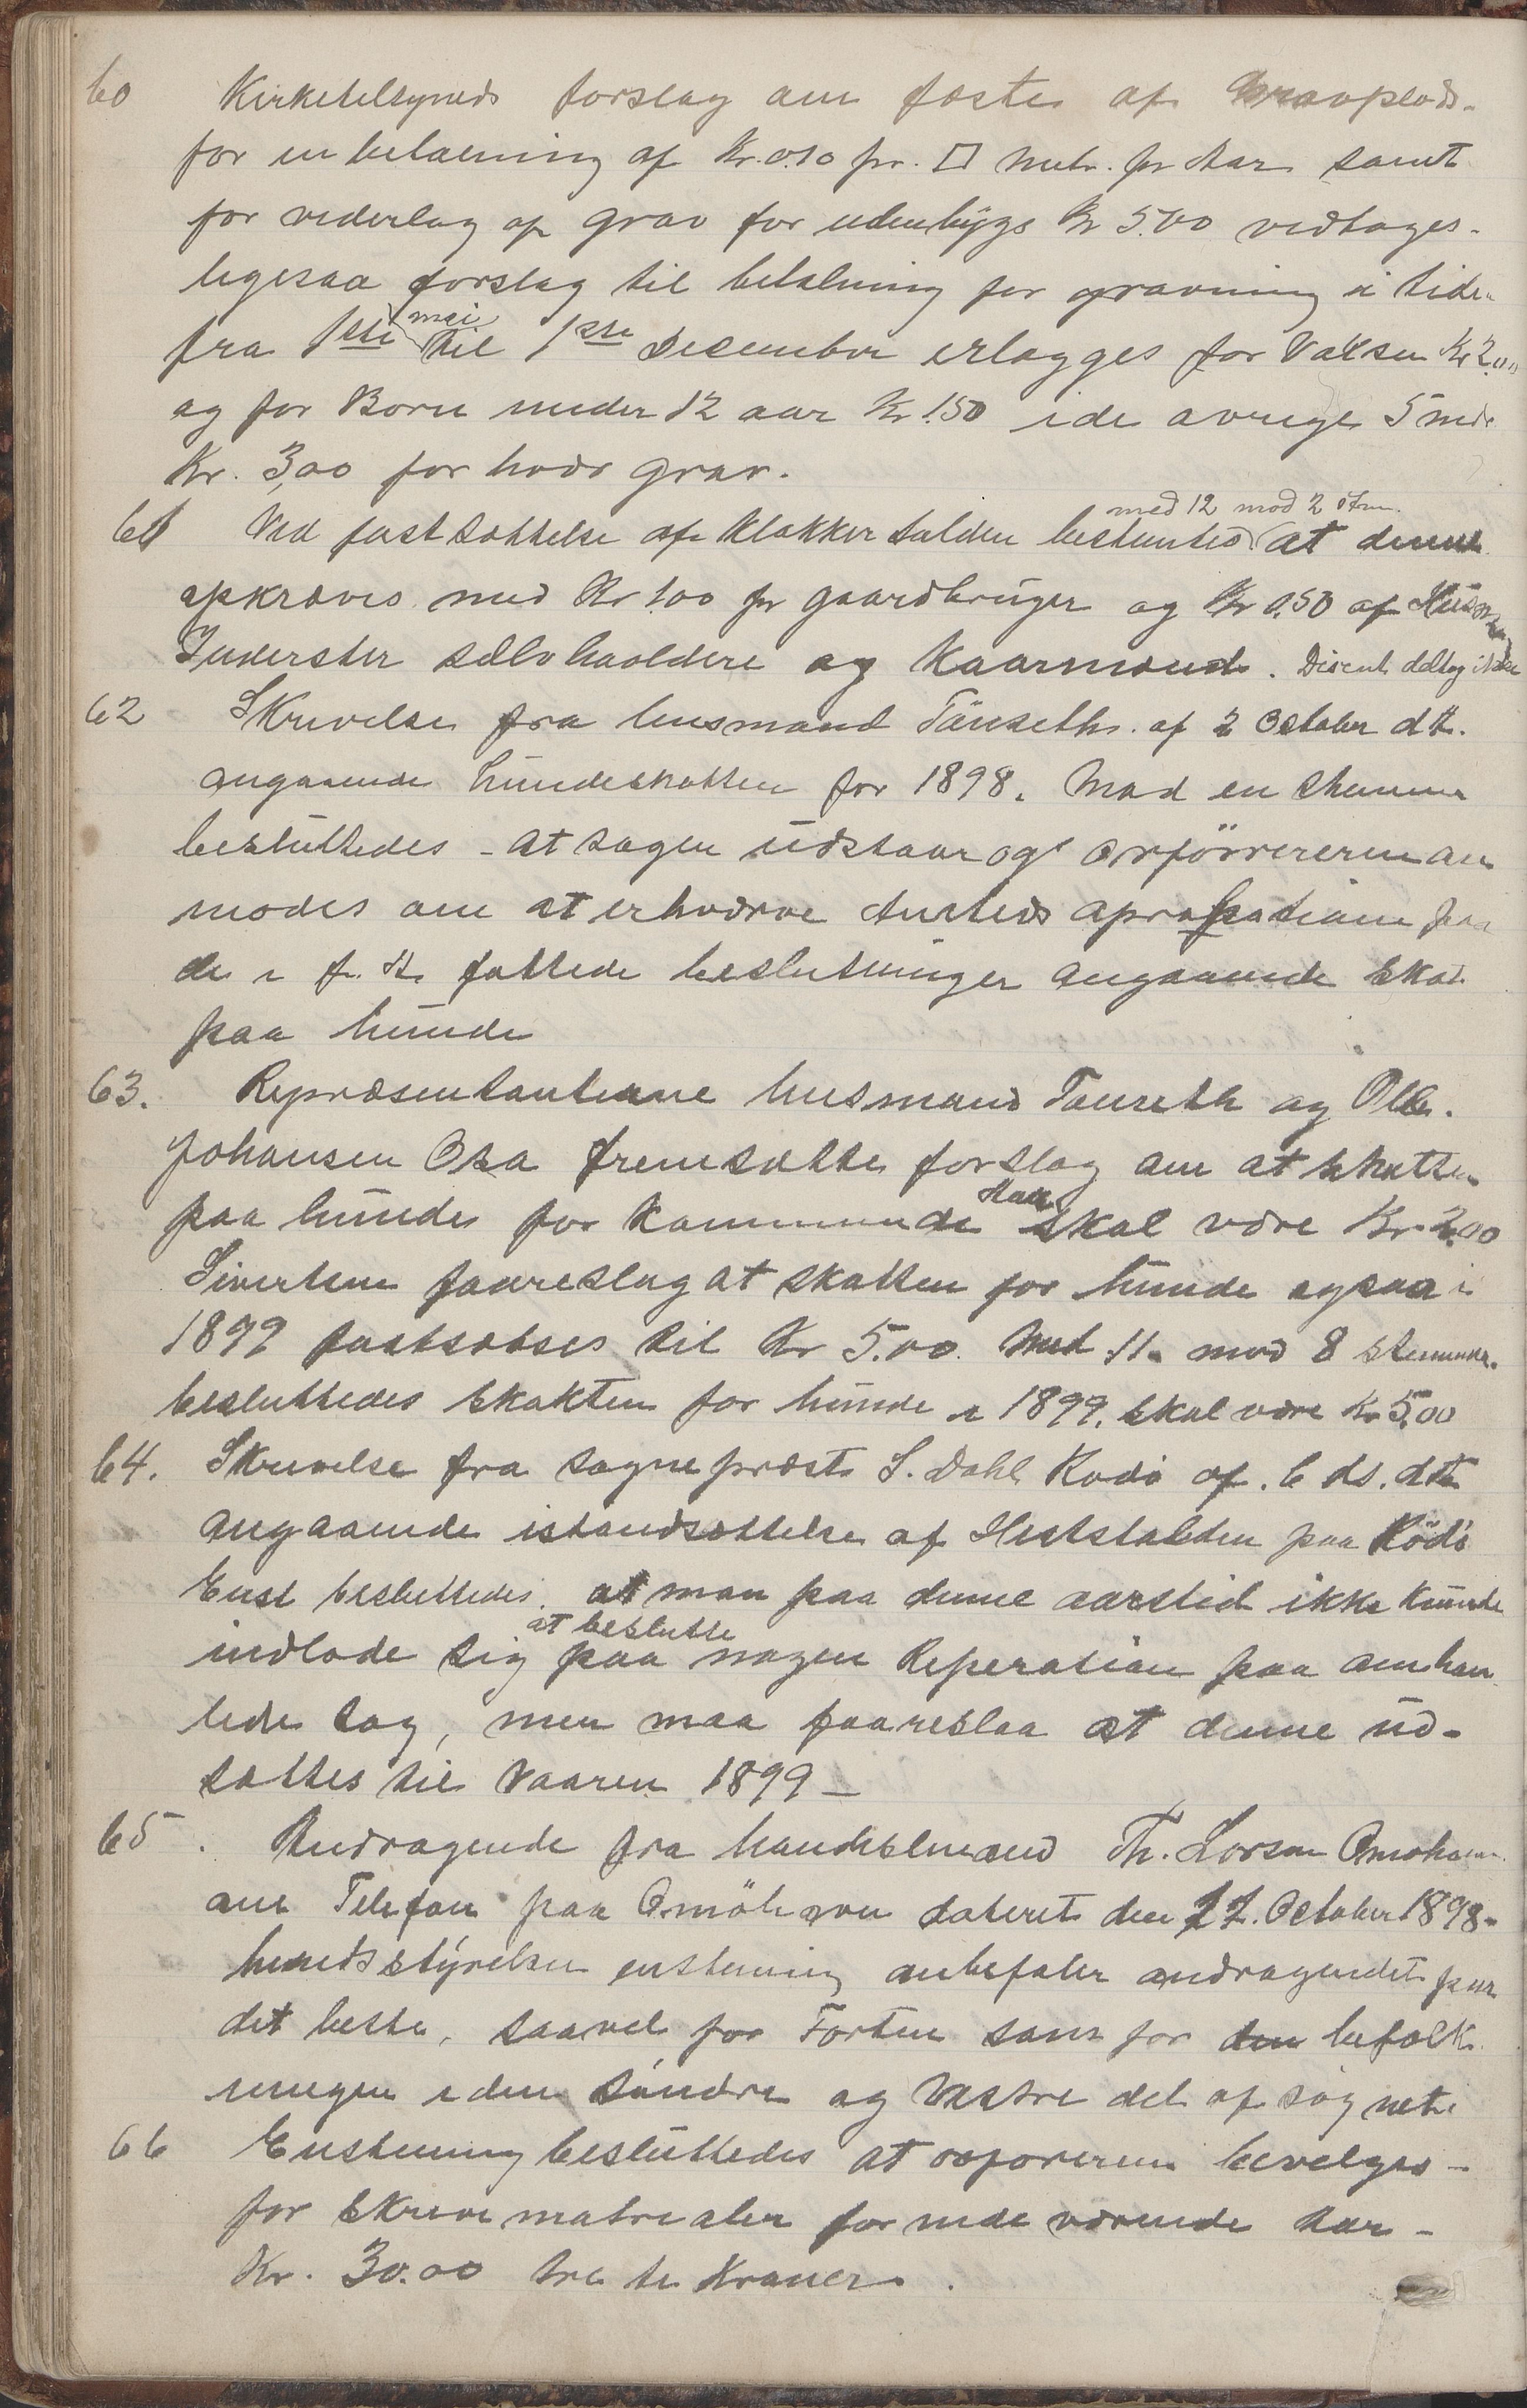 60 Kirketilsynets forslag om fæste af Gravplads-
for en betaling af Kr. 0.10 pr. □ metr. pr Aar samt
for vederlag af grav for udenbygs Kr 5.00 vedtages.
ligesaa forslag til betalning for gravning i tiden
fra 1ste mai til 1ste December erlægges for Vaksen Kr 2.00
og for Børn under 12 aar Kr 1.50 i de øvrige 5 mdr
Kr. 3,00 for hver grav.
61 Ved fastsættelse af Klokker tolden bestemtes med 12 mod 2 stm. at denne
opkræves med Kr 1.00 pr gaardbruger og Kr 0.50 af Husmænd
Inderster selvholdere og Kaarmænd. Disent deltog ikke
62 Skrivelse fra husmand Tänseth. af 2 October d.A.
angaaende Hundeskatten for 1898. Mod en stemme
besluttedes - at sagen udstaar og Orförereren an
modes om at erhværve Amtets aprobation paa
de i f. A. fattede beslutninger angaaende Skat
paa hunde
63. Repræsentanterne husmand Tanseth og Ole.
Johansen Osa fremsætte forslag om at skatten
paa hunde for kommende Aar skal være Kr. 2.00
Sivertsen foareslog at skatten for hunde ogsaa i
1899 fastsættes til Kr 5.00. Med 11. mod 8 stemmer.
besluttedes skatten for hunde i 1899. skal være Kr 5,00
64. Skrivelse fra Sogneprest S. Dahl Rødø af. 6 ds. dA
angaaende istandsættelse af Heststalden paa Rödö
Enst besluttedes. at man paa denne aarstid ikke kunde
indlade sig paa at beslutte nogen Reperation paa omhan
lede sag, men maa foareslaa at denne ud-
sættes til Vaaren 1899 -
65. Andragende fra handelsmand Th. Lorsen Omøhavn.
om Telefon paa Omöhavn dateret den 22. October 1898-
heredsstyrelsen enstemmig anbefaler andragendet paa
det beste, saavel for Torten som for den befolk
ningen i den söndre og Vestre del af sognet.
66 Enstemmig besluttedes at orføreren bevelges -
for skrive matrialer for nedeværende Aar -
Kr. 30.00 tretti Kroner.